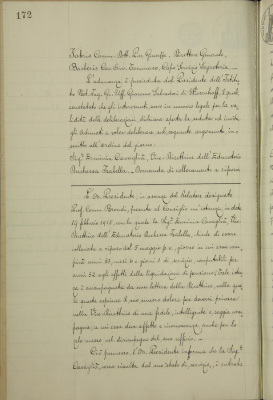 172
Fabris Comm. Dott. Giuseppe, Direttore Generale,
Barberis Cav. Tommaso, Capo Servizio Segreteria. —
L'adunanza è presieduta dal Presidente dell'Istituto
constatato che gli intervenuti sono in numero legale per la va-
lidità delle deliberazioni dichiara aperta la seduta ed invita
gli adunati a voler deliberare sul seguente argomento, in-
scritto all'ordine del giorno:
Sig.ª Erminia Caviglia, Vice Direttrice dell'Educatorio
Duchessa Isabella. Domanda di collocamento a riposo
Il Sr. Presidente, in assenza del Relatore designato
Prof. Comm. presenta al Consiglio un'istanza in data
19 febbraio 1918, con la quale la Sig.ª Erminia Caviglia, Vice
Direttrice dell'Educatorio Duchessa Isabella, chiede di essere
collocata a riposo dal 5 maggio p.v., giorno in cui essa com-
pirà anni 31, mesi e giorni di servizio computabili per
anni 32 agli effetti della liquidazione di pensione; Tale istan-
za è accompagnata da una lettera della Direttrice, nella qua-
le questa esprime il suo sincero dolore per doversi privare
nella Vice Direttrice di una fedele, intelligente e saggia com-
pagna, a cui essa deve affetto e riconoscenza, anche per lo
zelo messo nel disimpegno del suo ufficio. —
Ciò premesso, il Sr. Presidente informa che la Sig.ª
Caviglia, come risulta dal suo stato di servizio, è entrata